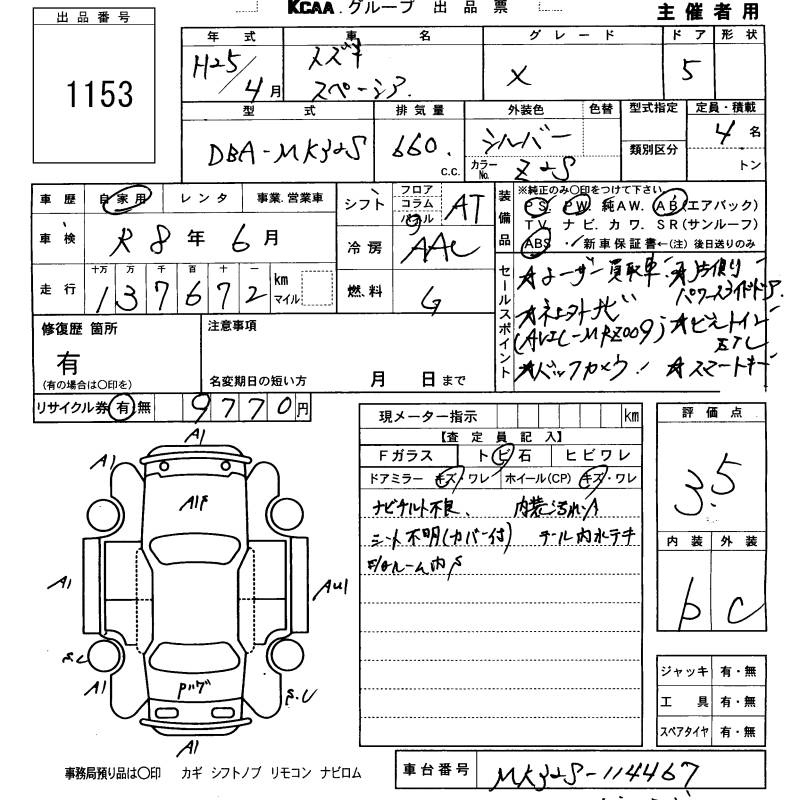 KCAA.グループ 出品票
主催者用
出品番号
1153
年式 車名 グレード ドア 形状
H25/4月 スズキ スペーシア X 5
型式 排気量 外装色 色替 型式指定 定員・積載
DBA-MK32S 660. c.c. シルバー カラーNo. Z2S 類別区分 4名
トン
車歴 自家用 レンタ 事業.営業車
車検 R8年6月
走行 十万 万 千 百 十 一
137672 km マイル
シフト フロア コラム パネル AT
冷房 AAC
燃料 G
装備品 ※純正のみ〇印をつけて下さい
PS. PW. 純AW. AB(エアバック)
TV. ナビ. カワ. SR(サンルーフ)
ABS . 新車保証書←(注)後日送りのみ
セールスポイント
★ユーザー買取車 ★片側パワースライドドア
★社外ナビ
(AVIC-MRZ009) ★ビルトインETC
★バックカメラ! ★スマートキー
修復歴 箇所
有
(有の場合は〇印を)
注意事項
名変期日の短い方 月 日まで
リサイクル券 有.無 9770円
現メーター指示 km
【査定員記入】
Fガラス トビ石 ヒビワレ
ドアミラー キズ・ワレ ホイール(CP) キズ・ワレ
ナビチルト不良、 内装汚れ
シート不明(カバー付) テール内水テキ
ルーム内S
評価点
3.5
内装 外装
b C
ジャッキ 有・無
工具 有・無
スペアタイヤ 有・無
A1
A1
A1F
A1
AU1
S.C
A1
Pパグ
S.C
A1
事務局預り品は〇印 カギ シフトノブ リモコン ナビロム
車台番号 MK32S-114467